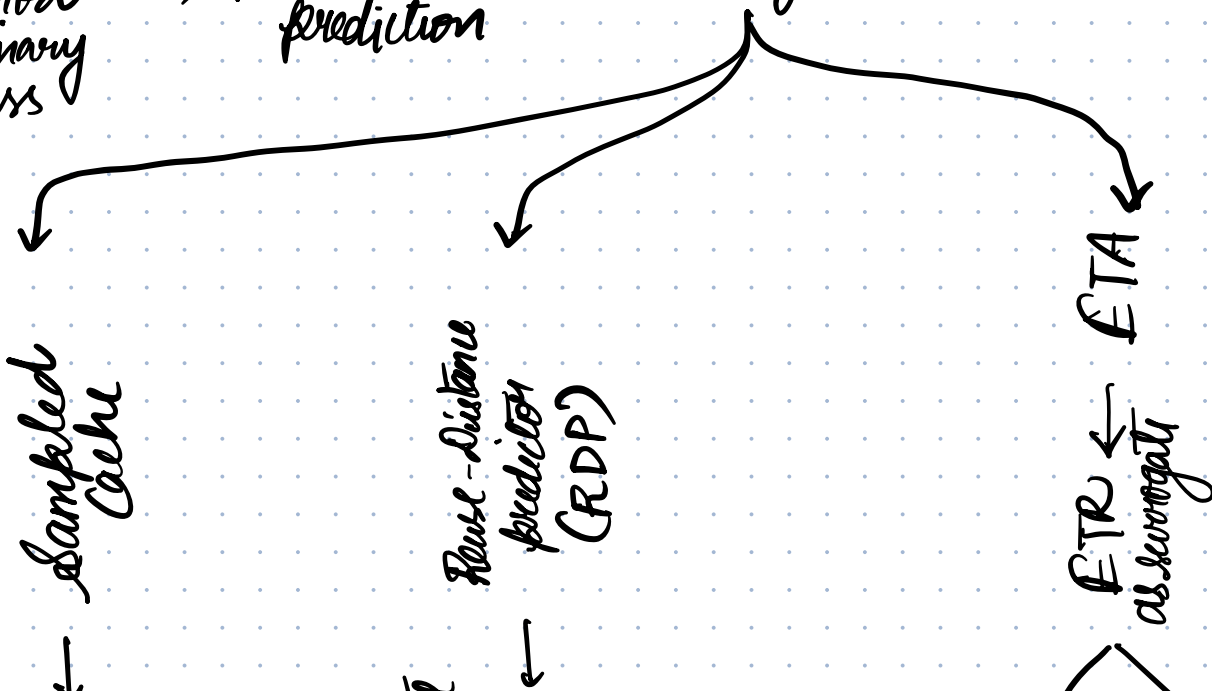 prediction
Sampled
Cache
Reuse-Distance
predictor
(RDP)
ETA
ETR
as surrogate